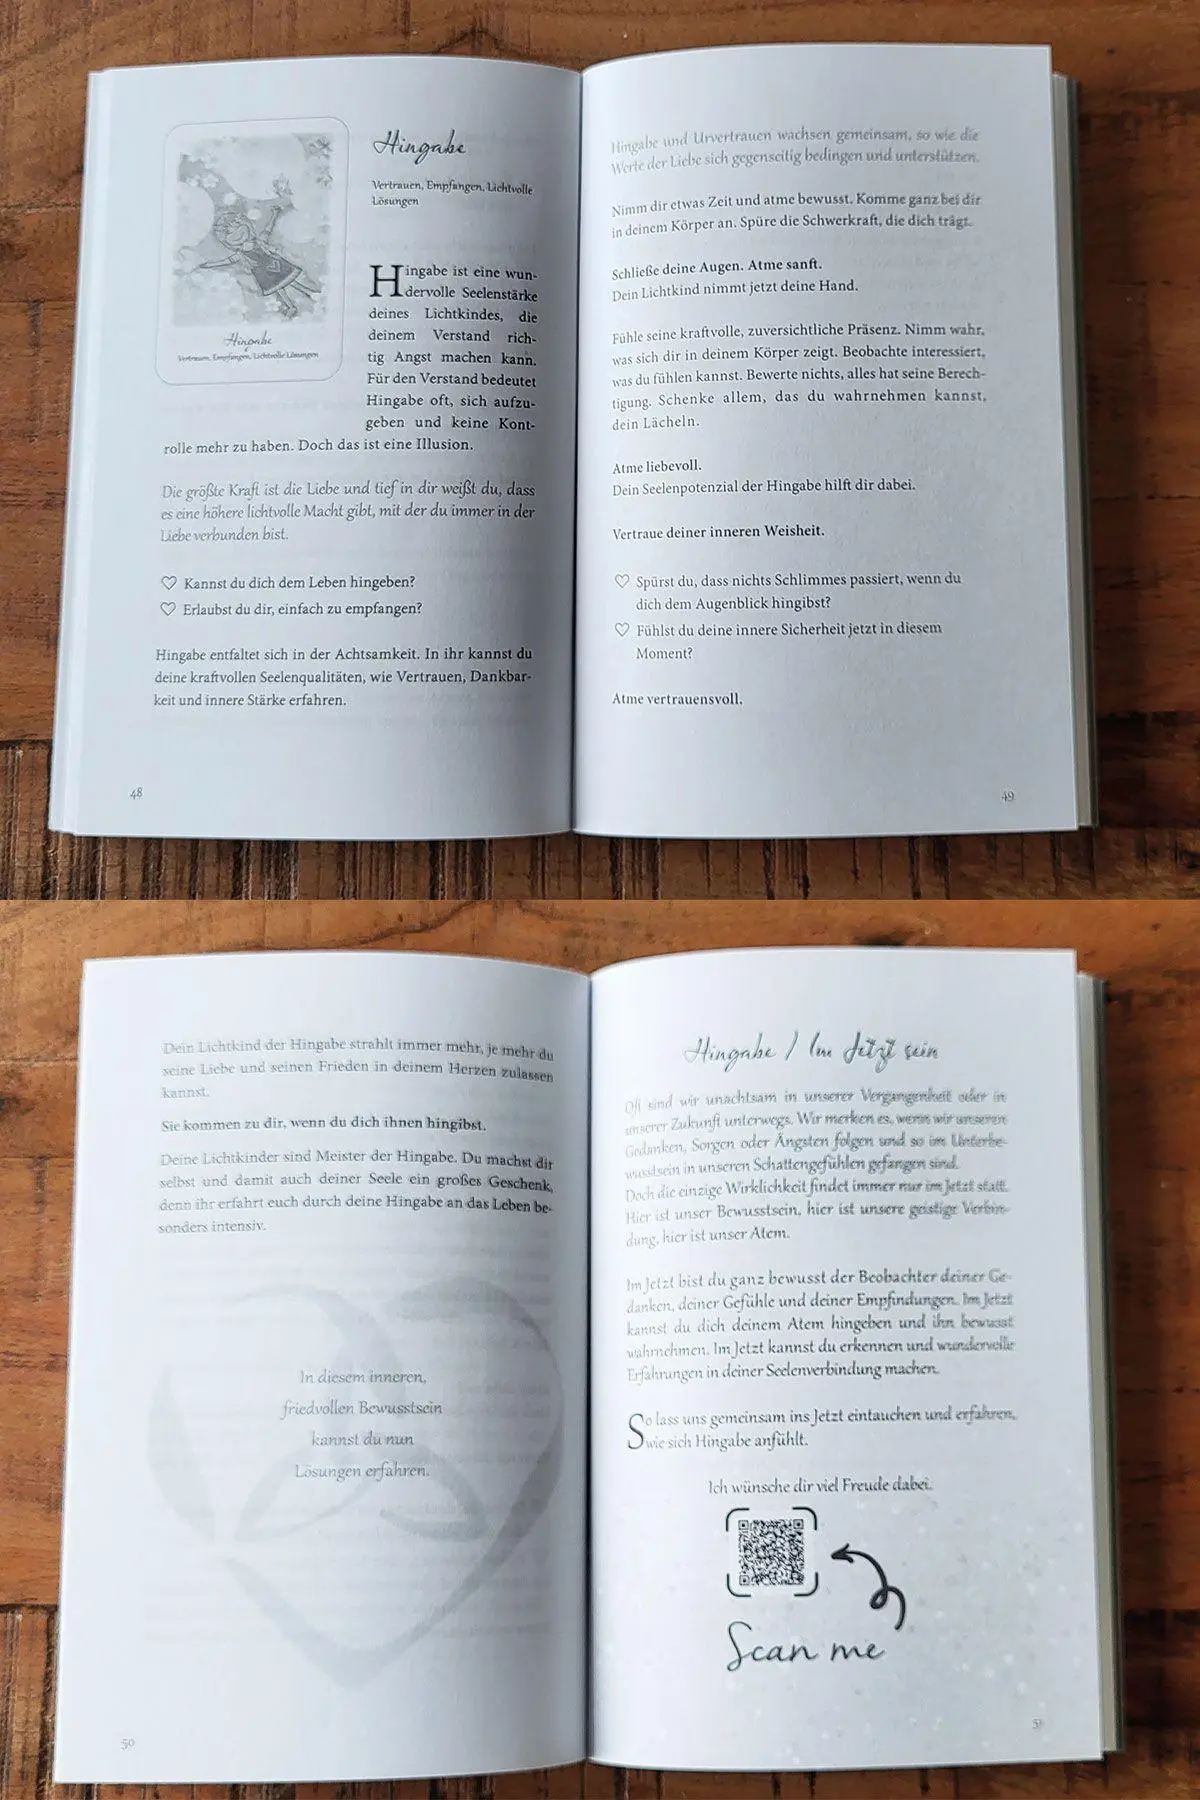 Hingabe
Vertrauen, Empfangen, Lichtvolle
Lösungen
Hingabe
Vertrauen, Empfangen, Lichtvolle Lösungen
Hingabe ist eine wun-
dervolle Seelenstärke
deines Lichtkindes, die
deinem Verstand rich-
tig Angst machen kann.
Für den Verstand bedeutet
Hingabe oft, sich aufzu-
geben und keine Kont-
rolle mehr zu haben. Doch das ist eine Illusion.
Die größte Kraft ist die Liebe und tief in dir weißt du, dass
es eine höhere lichtvolle Macht gibt, mit der du immer in der
Liebe verbunden bist.
♡ Kannst du dich dem Leben hingeben?
♡ Erlaubst du dir, einfach zu empfangen?
Hingabe entfaltet sich in der Achtsamkeit. In ihr kannst du
deine kraftvollen Seelenqualitäten, wie Vertrauen, Dankbar-
keit und innere Stärke erfahren.
48
Hingabe und Urvertrauen wachsen gemeinsam, so wie die
Werte der Liebe sich gegenseitig bedingen und unterstützen.
Nimm dir etwas Zeit und atme bewusst. Komme ganz bei dir
in deinem Körper an. Spüre die Schwerkraft, die dich trägt.
Schließe deine Augen. Atme sanft.
Dein Lichtkind nimmt jetzt deine Hand.
Fühle seine kraftvolle, zuversichtliche Präsenz. Nimm wahr,
was sich dir in deinem Körper zeigt. Beobachte interessiert,
was du fühlen kannst. Bewerte nichts, alles hat seine Berech-
tigung. Schenke allem, das du wahrnehmen kannst,
dein Lächeln.
Atme liebevoll.
Dein Seelenpotenzial der Hingabe hilft dir dabei.
Vertraue deiner inneren Weisheit.
♡ Spürst du, dass nichts Schlimmes passiert, wenn du
dich dem Augenblick hingibst?
♡ Fühlst du deine innere Sicherheit jetzt in diesem
Moment?
Atme vertrauensvoll.
49
Dein Lichtkind der Hingabe strahlt immer mehr, je mehr du
seine Liebe und seinen Frieden in deinem Herzen zulassen
kannst.
Sie kommen zu dir, wenn du dich ihnen hingibst.
Deine Lichtkinder sind Meister der Hingabe. Du machst dir
selbst und damit auch deiner Seele ein großes Geschenk,
denn ihr erfahrt euch durch deine Hingabe an das Leben be-
sonders intensiv.
In diesem inneren,
friedvollen Bewusstsein
kannst du nun
Lösungen erfahren.
50
Hingabe / Im Jetzt sein
Oft sind wir unachtsam in unserer Vergangenheit oder in
unserer Zukunft unterwegs. Wir merken es, wenn wir unseren
Gedanken, Sorgen oder Ängsten folgen und so im Unterbe-
wusstsein in unseren Schattengefühlen gefangen sind.
Doch die einzige Wirklichkeit findet immer nur im Jetzt statt.
Hier ist unser Bewusstsein, hier ist unsere geistige Verbin-
dung, hier ist unser Atem.
Im Jetzt bist du ganz bewusst der Beobachter deiner Ge-
danken, deiner Gefühle und deiner Empfindungen. Im Jetzt
kannst du dich deinem Atem hingeben und ihn bewusst
wahrnehmen. Im Jetzt kannst du erkennen und wundervolle
Erfahrungen in deiner Seelenverbindung machen.
So lass uns gemeinsam ins Jetzt eintauchen und erfahren,
wie sich Hingabe anfühlt.
Ich wünsche dir viel Freude dabei.
Scan me
51